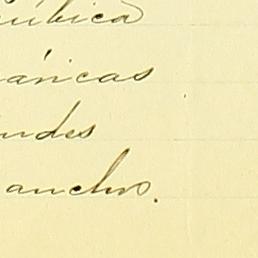 úbica
ánicas
indes
ancho.